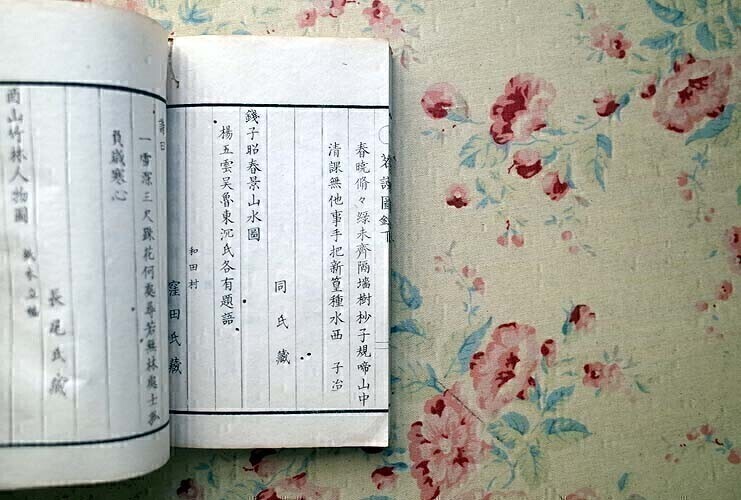 茗讌圖錄下
春曉脩々緑未齊隔墻樹杪子規啼山中
清課無他事手把新篁種水西 子冶
同氏藏
錢子昭春景山水圖
楊五雲吳魯東沉氏各有題語
和田村
窪田氏藏
詩曰
一雪深三尺 花何處尋若無林處士孤
負歲寒心
山竹林人物圖
紙本立幅
長尾氏藏